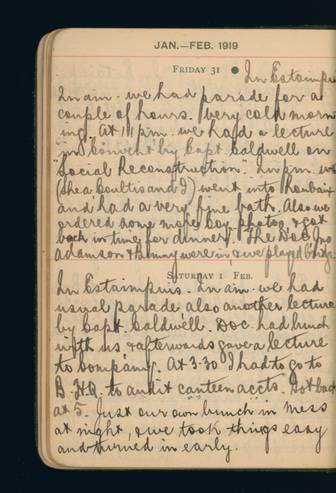 JAN.—FEB. 1919
FRIDAY 31 In Estaimpuis
In am. we had parade for a
couple of hours. Very cold morn
ing. At 11 pm. we had a lecture
in Convent by Capt. Caldwell on
"Social Reconstruction". In pm. we
(Shea Coultis and I) went into Roubaix
and had a very fine bath. Also we
ordered some more Coy. photos & got
back in time for dinner. The Doc, Jn
Adamson & Hunny were in, & we played
SATURDAY 1 FEB.
In Estaimpuis. In am. we had
usual parade also another lecture
by Capt. Caldwell. Doc. had lunch
with us & afterwards gave a lecture
to Company. At 3.30 I had to go to
B.H.Q. to audit canteen accts. Got back
at 5. Just our own "bunch" in mess
at night, & we took things easy
and turned in early.